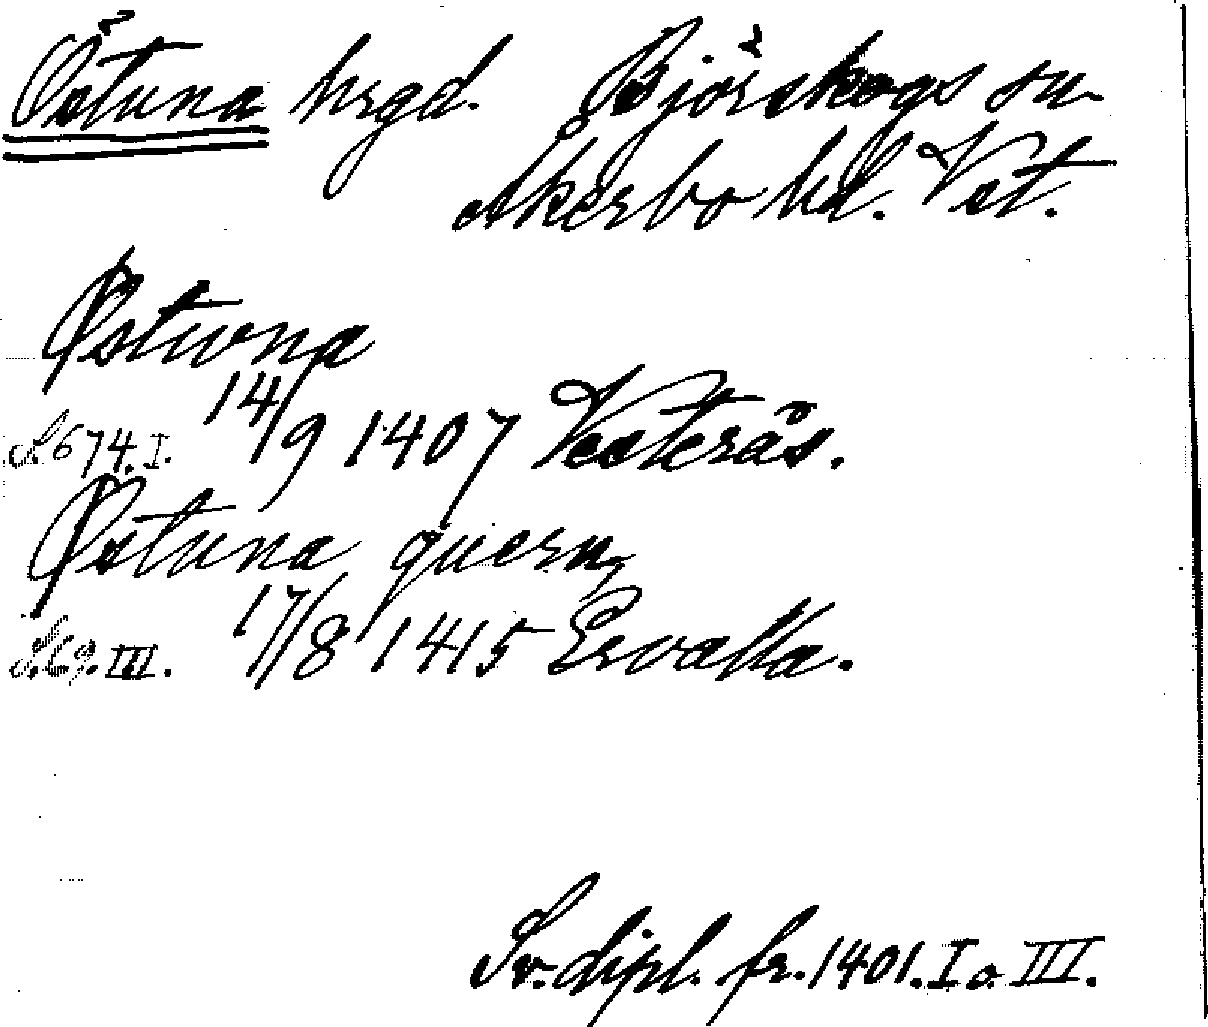 Östuna hrgd. Björskogs sn
Åkerbo hd. Vst.
Østwna
S. 674. I. 14/9 1407 Vesterås.
Østuna quern
S. 69. III. 17/8 1415 Ervalla.
Sv. dipl. fr. 1401. I o. III.